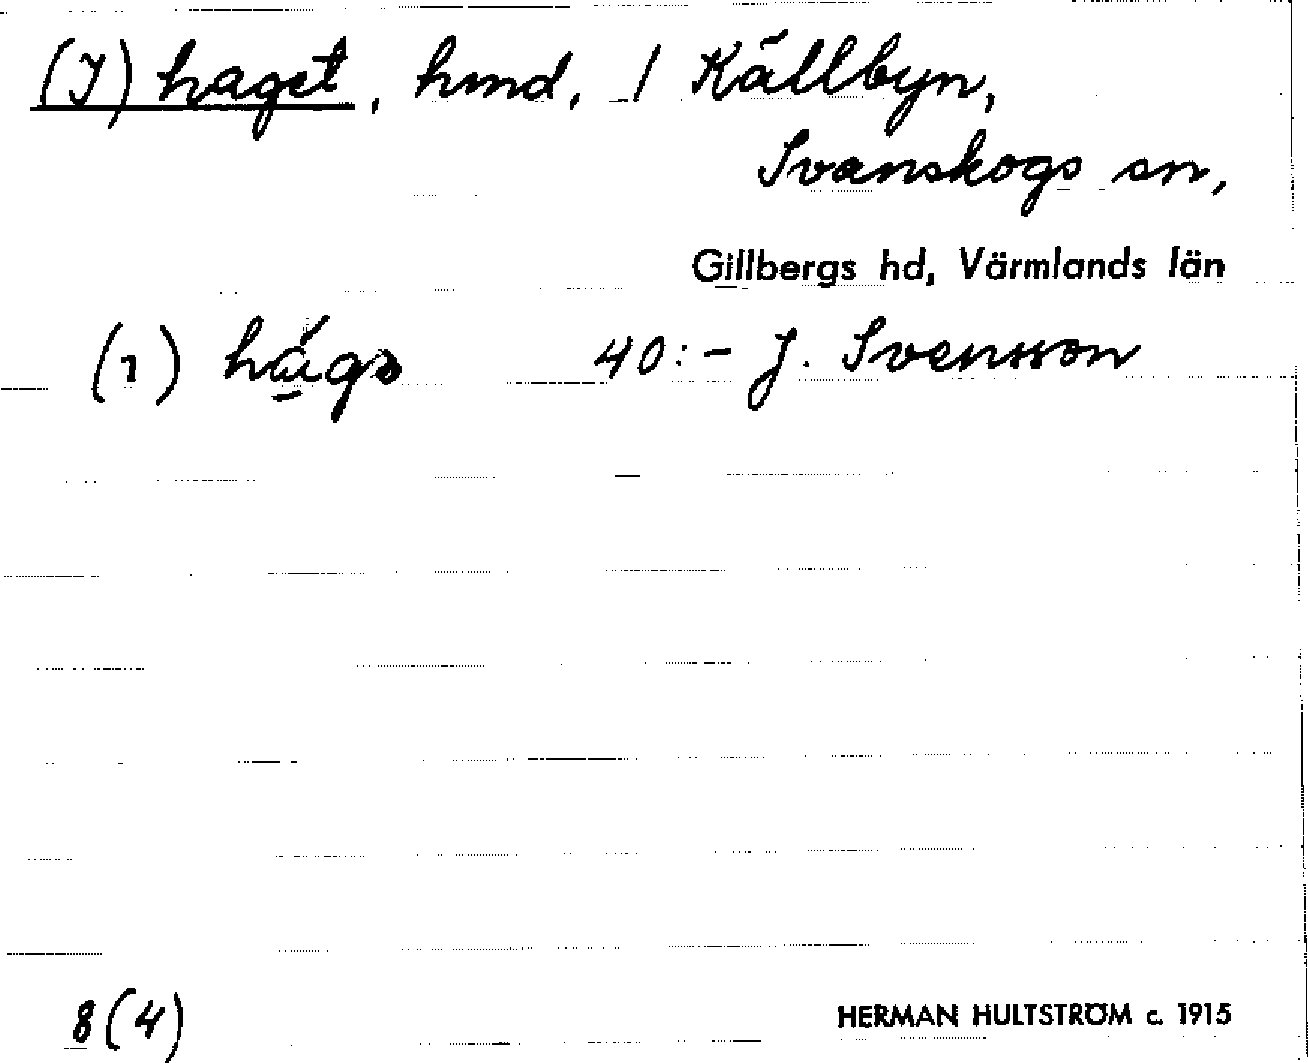 (I) haget, hmd, 1 Källbyn,
Svanskogs sn,
Gillbergs hd, Värmlands län
(1) 40:- J. Svensson
8(4) HERMAN HULTSTRÖM c. 1915